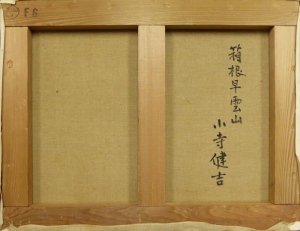 F6
箱根早雲山
小寺健吉